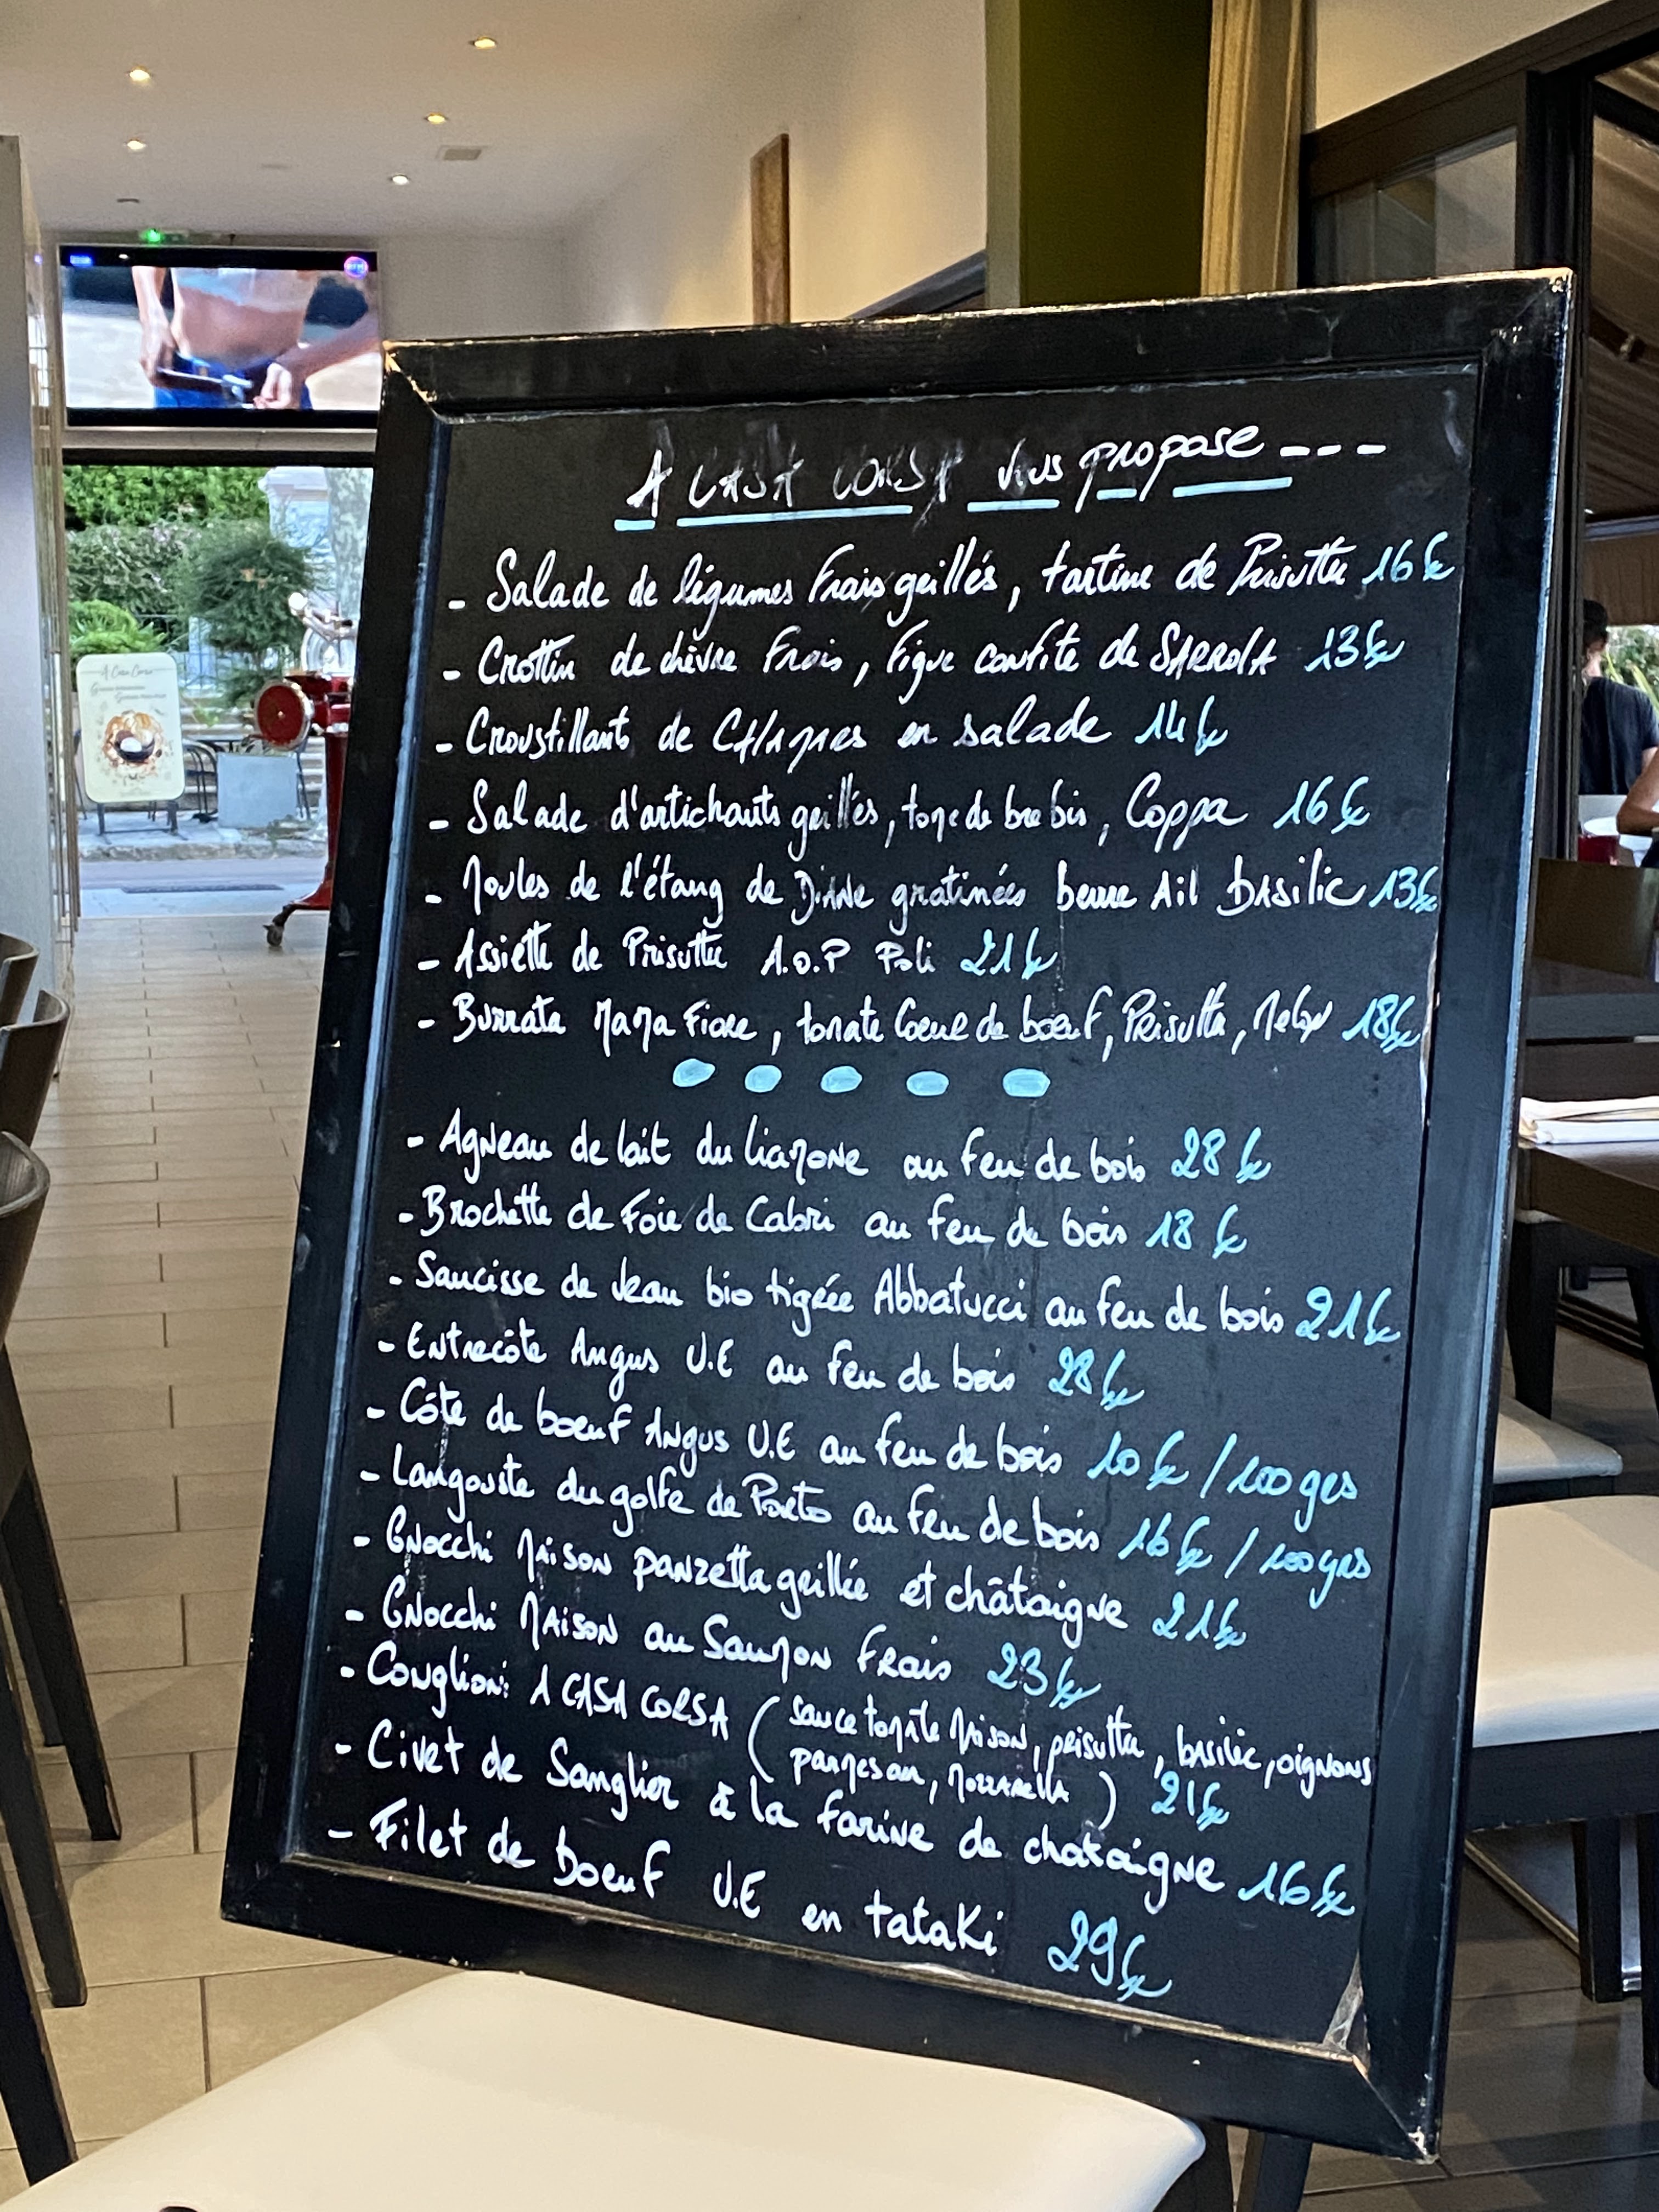 A CASA CORSA vous propose ---
- Salade de légumes Frais grillés, tartine de Prisuttu 16€
- Crottin de chèvre Frais, Figue confite de SARROLA 13€
- Croustillants de CHèvres en salade 14€
- Salade d'artichauts grillés, tome de brebis, Coppa 16€
- Moules de l'étang de DIANE gratinées beurre Ail BASilic 13€
- Assiette de Prisuttu A.O.P Poli 21€
- Burrata MaMa Fiore, tomate Coeur de boeuf, Prisuttu, Melon 18€
- Agneau de lait du Liamone au feu de bois 28€
- Brochette de Foie de Cabri au feu de bois 18€
- Saucisse de Veau bio tigrée Abbatucci au feu de bois 21€
- Entrecôte Angus U.E au feu de bois 28€
- Côte de boeuf Angus U.E au feu de bois 10€/100grs
- Langouste du golfe de Porto au feu de bois 16€/100grs
- Gnocchi Maison panzetta grillée et châtaigne 21€
- Gnocchi MAison au Saumon Frais 23€
- Conglioni A CASA CORSA (sauce tomate Maison, prisuttu, basilic, oignons
parmesan, Mozzarella) 21€
- Civet de Sanglier à la farine de chataigne 16€
- Filet de boeuf U.E en tataki 29€
A Casa Corsa